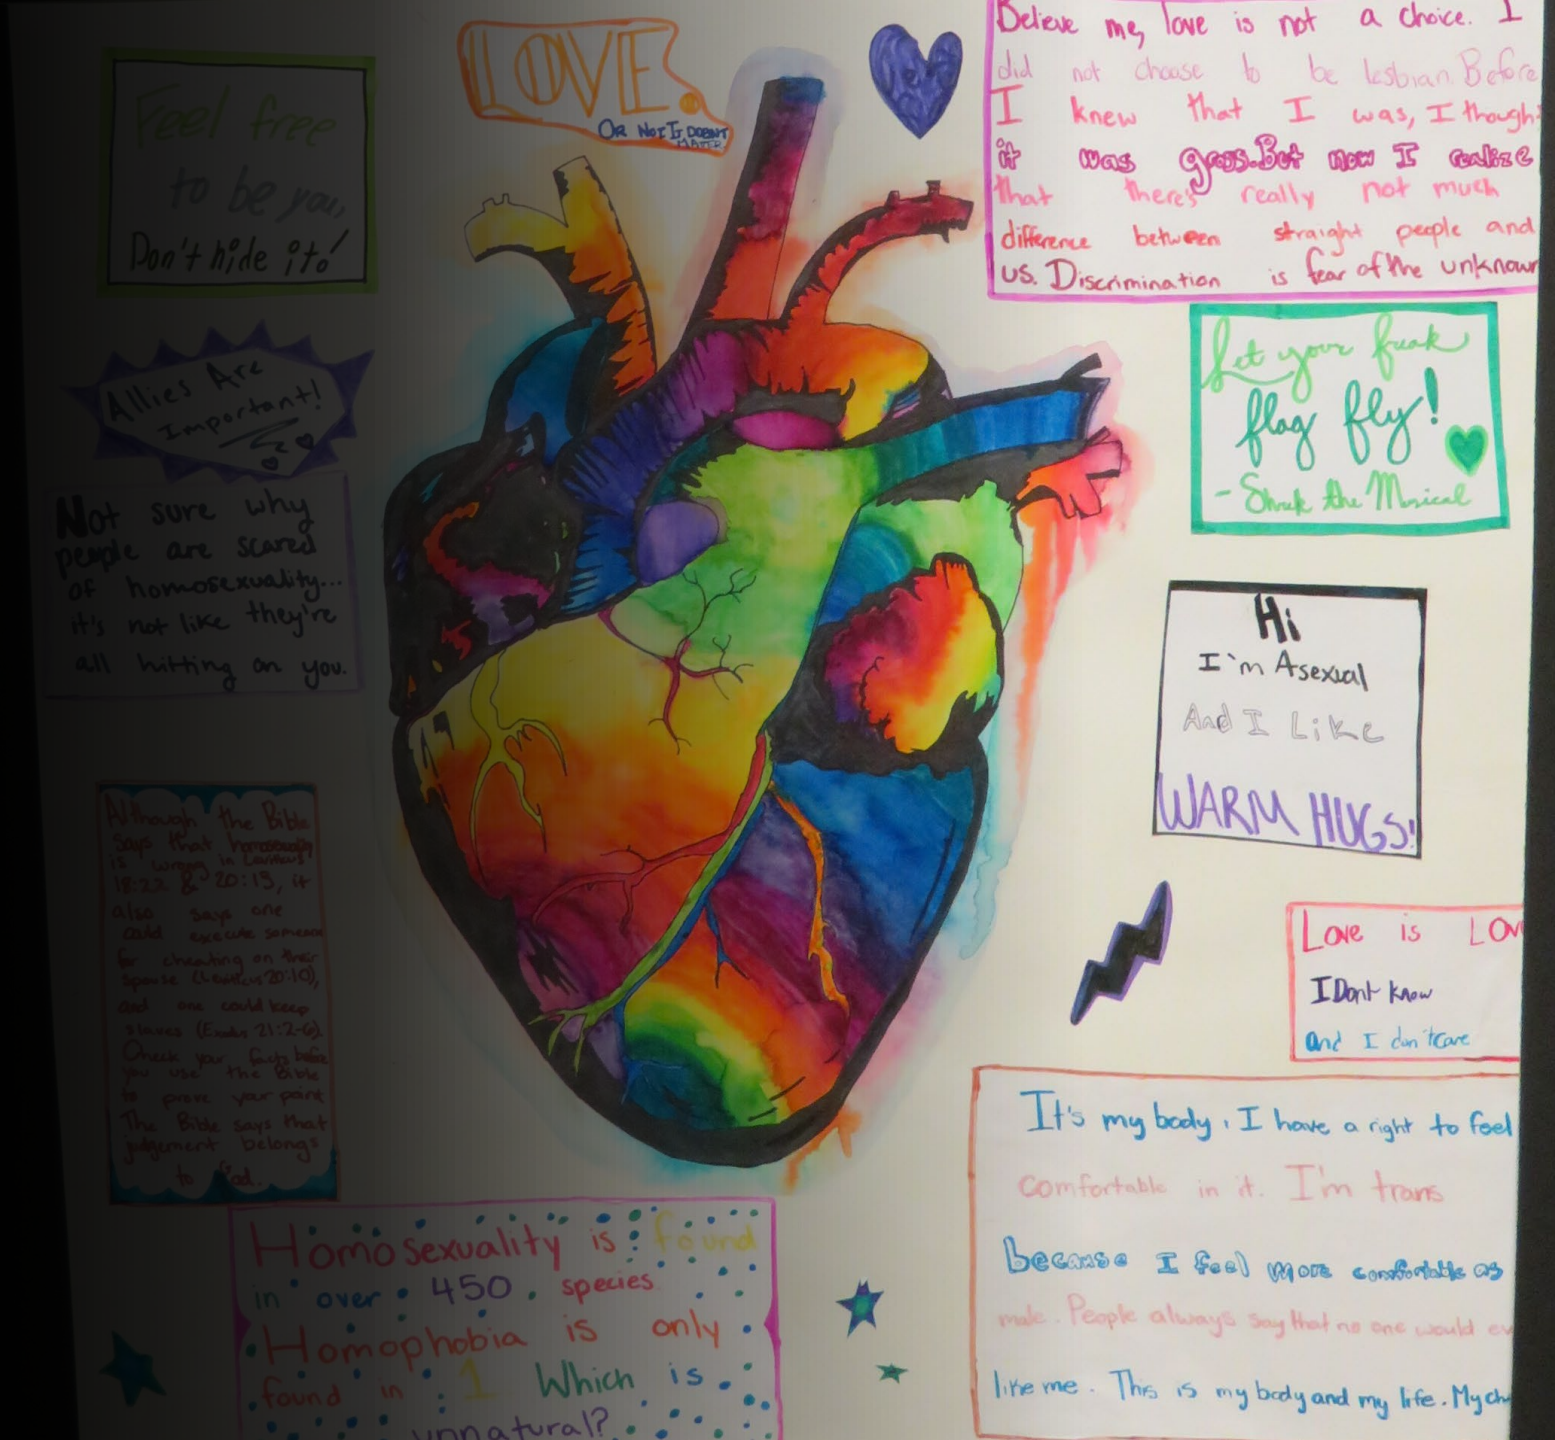 Feel free
to be you,
Don't hide it!
LOVE.
OR NOT IT DOESN'T
MATTER.
Believe me, love is not a choice. I
did not choose to be lesbian. Before
I knew that I was, I though
it was gross. But now I realize
that there's really not much
difference between straight people and
us. Discrimination is fear of the unknown
Allies Are
Important!
Let your freak
flag fly!
- Shrek the Musical
Not sure why
people are scared
of homosexuality...
it's not like they're
all hitting on you.
Hi
I'm Asexual
And I Like
WARM HUGS!
Although the Bible
says that homosexuality
is wrong in Leviticus
18:22 & 20:13, it
also says one
could execute someone
for cheating on their
spouse (Leviticus 20:10),
and one could keep
slaves (Exodus 21:2-6).
Check your facts before
you use the Bible
to prove your point
The Bible says that
judgement belongs
to God.
Love is LOV
I Dont know
and I don't care
It's my body, I have a right to feel
comfortable in it. I'm trans
because I feel more comfortable as
male. People always say that no one would ev
like me. This is my body and my life. My ch
Homosexuality is found
in over 450 species.
Homophobia is only
found in 1 Which is
unnatural?